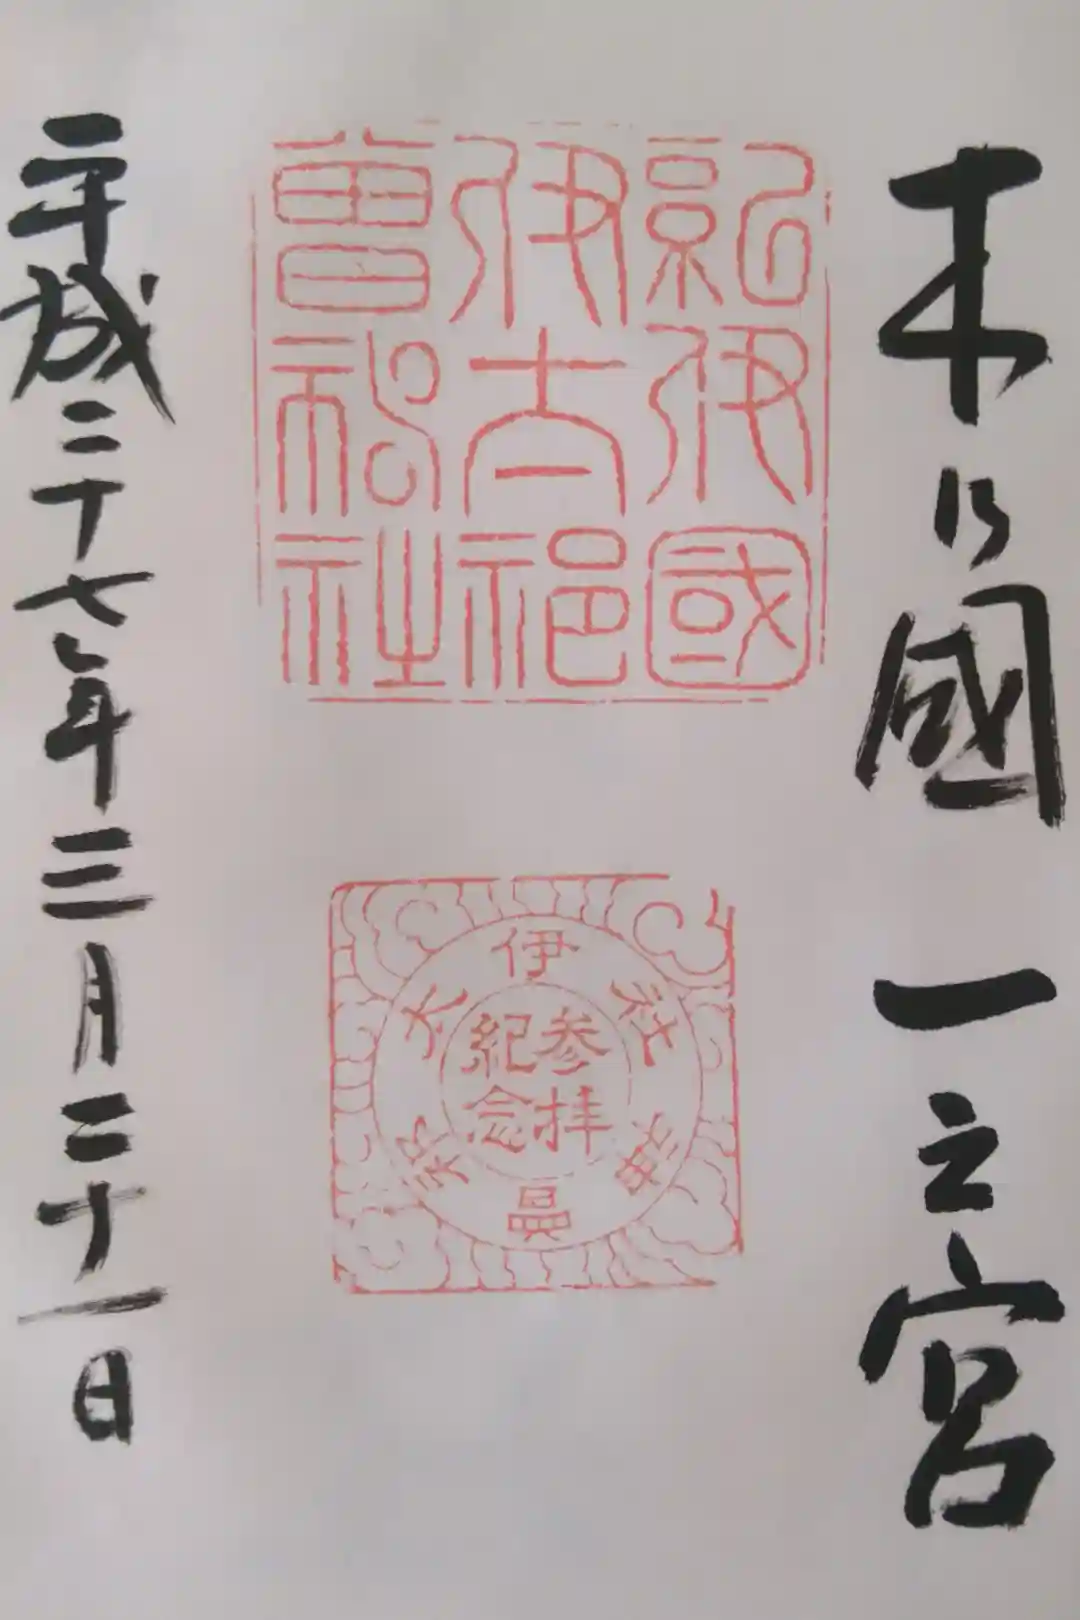 木乃國一之宮
紀伊國
伊太祁
曾神社
伊太祁曽神社
参拝
紀念
平成二十七年三月二十一日